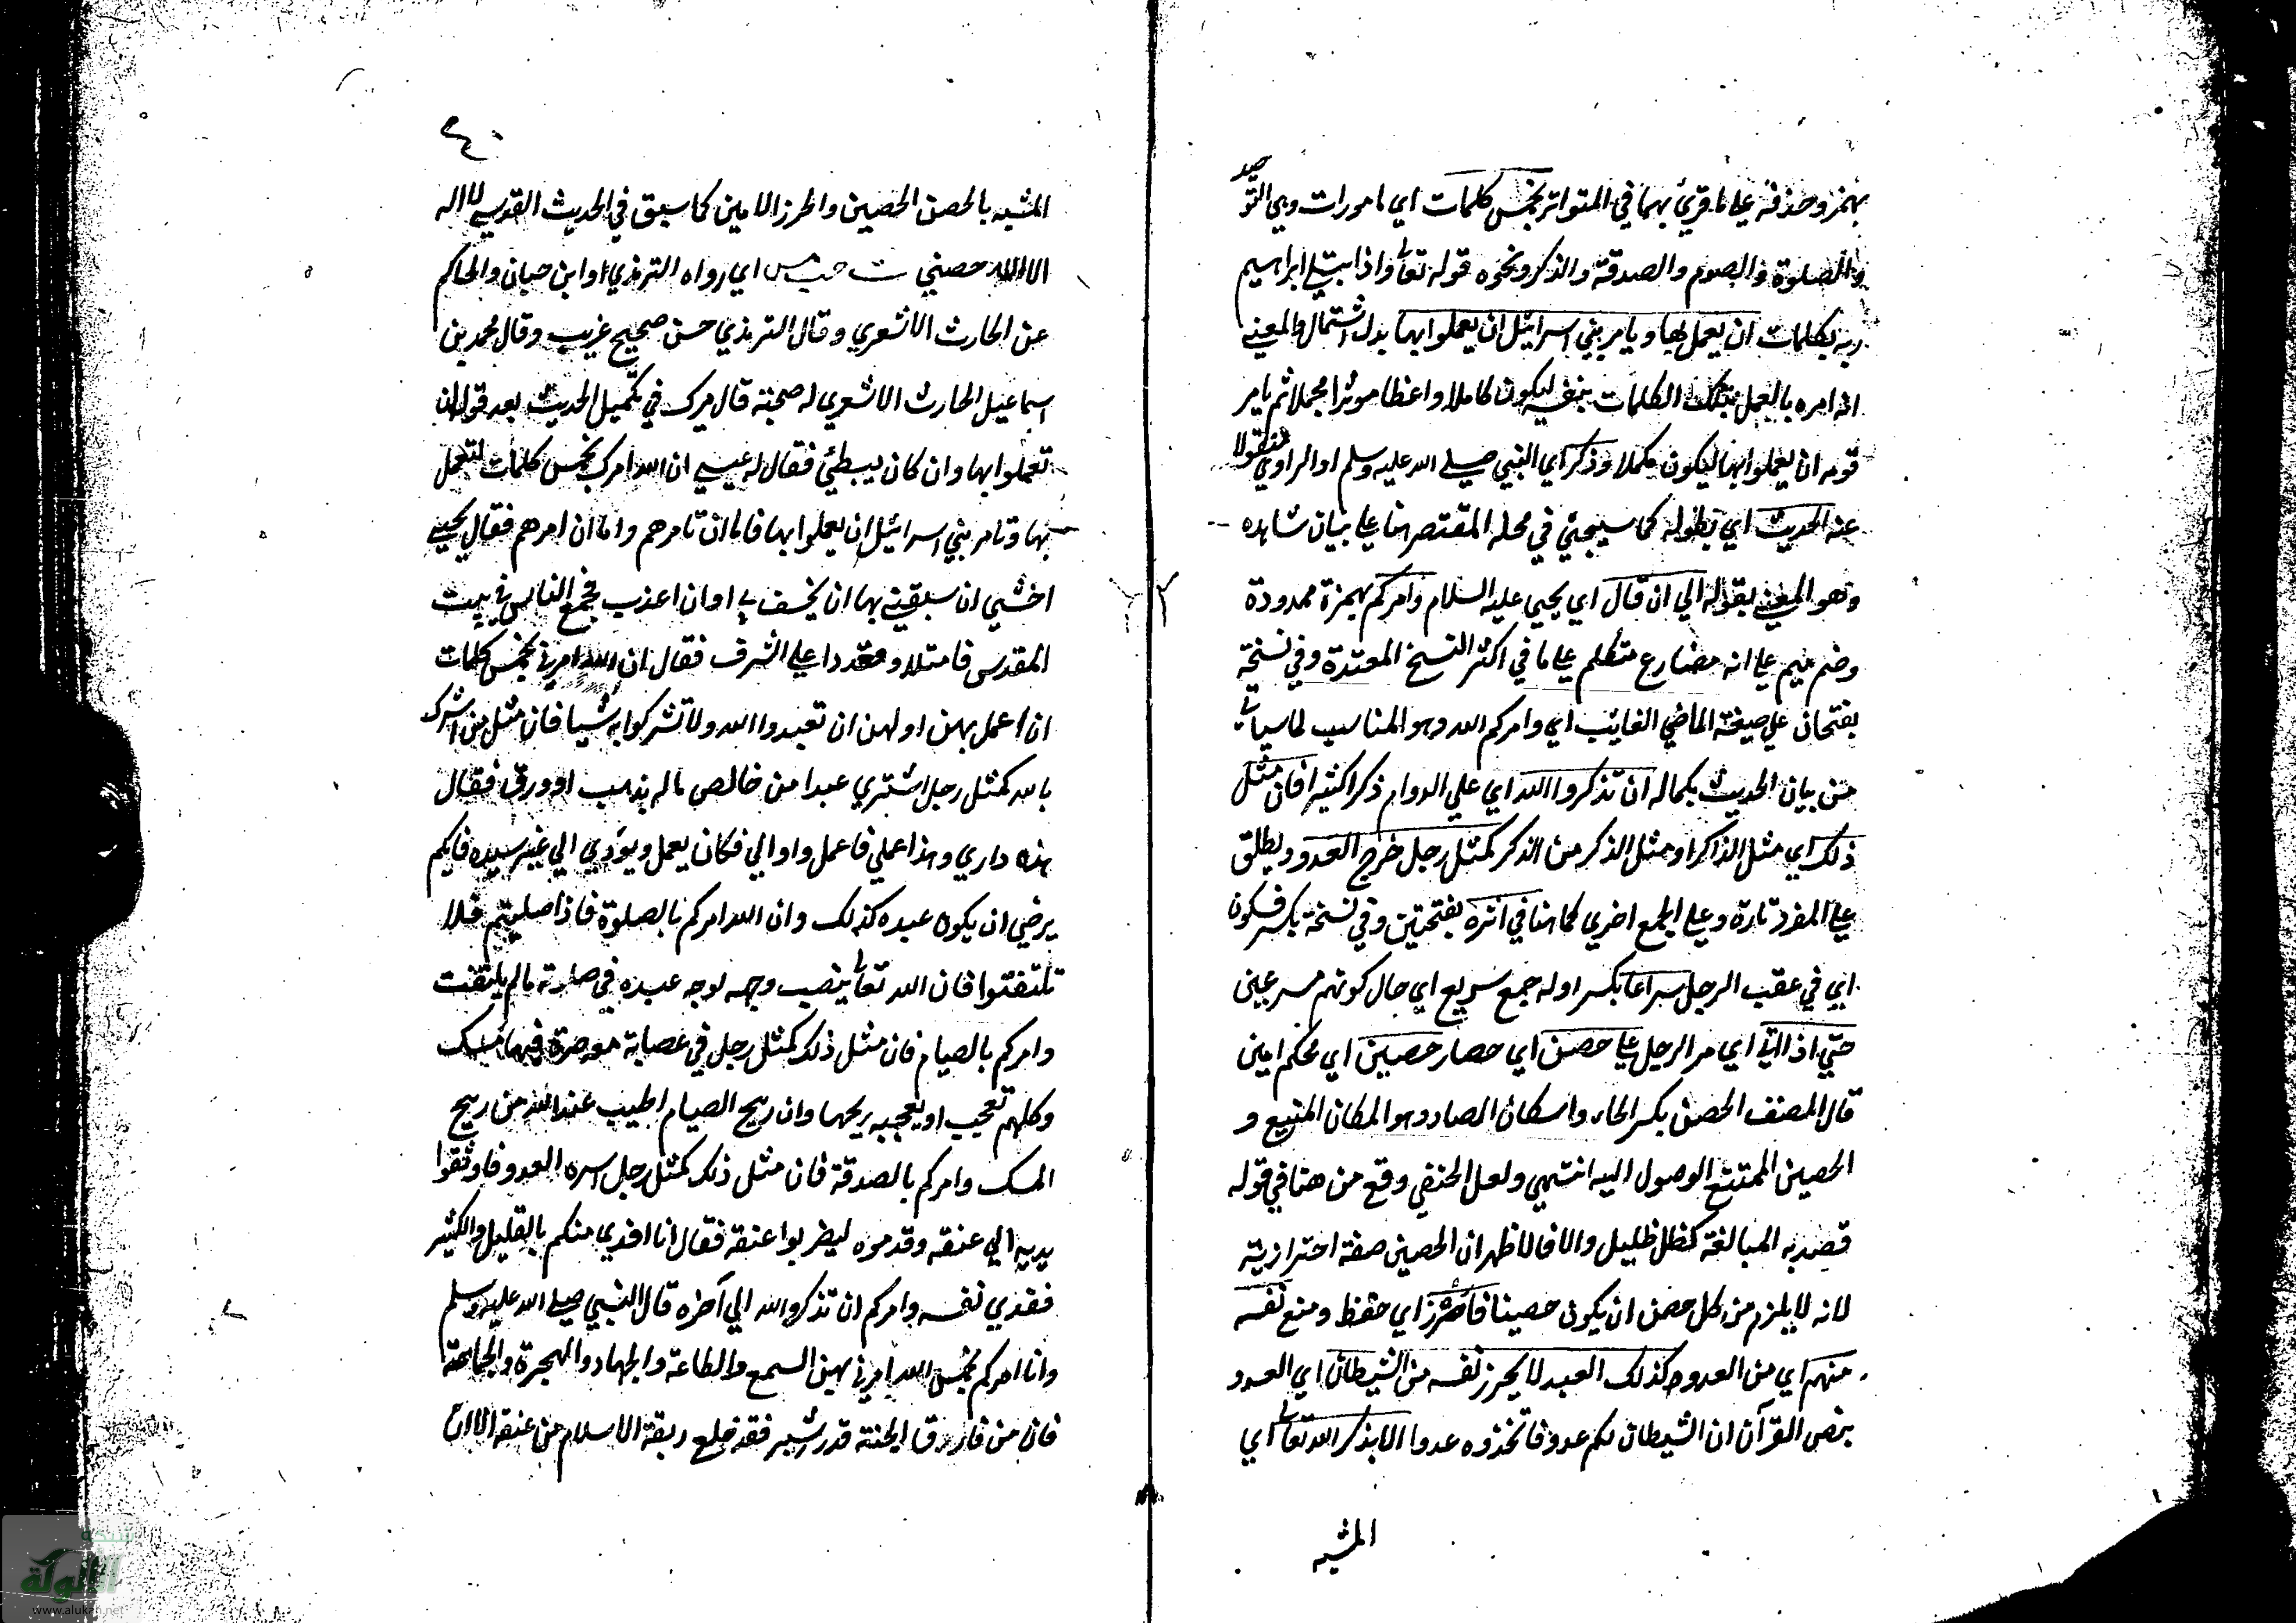 بهمز وحذفه على ما قرئ بهما في المتواتر بخمس كلمات اي مامورات وهي التوحيد
والصلوة والصوم والصدقة والذكر ونحوه قوله تعالى واذا ابتلي ابراهيم
ربه بكلمات ان يعمل بها ويامر بني اسرائيل ان يعملوا بها بدل اشتمال والمعني
انه امره بالعمل بتلك الكلمات بنفسه ليكون كاملا واعظا موثرا مجملا ثم يامر
قومه ان يعملوا بها ليكون مكملا وذكر اي النبي صلي الله عليه وسلم او الراوي منقولا
عنه الحديث اي بطوله كما سيجئ في محله المقتصر هنا علي بيان شاهده
وهو المعني بقوله الي ان قال اي يحيي عليه السلام وامركم بهمزة ممدودة
وضم ميم علي انه مضارع متكلم علي ما في اكثر النسخ المعتمدة وفي نسخة
بفتحات علي صيغة الماضي الغايب اي وامركم الله وهو المناسب لما سياتي
من بيان الحديث بكماله ان تذكروا الله اي علي الدوام ذكرا كثيرا فان مثل
ذلك اي مثل الذاكر او مثل الذكر من الذكر كمثل رجل خرج العدو ويطلق
علي المفرد تارة وعلي الجمع اخري كما هنا في اثره بفتحتين وفي نسخة بكسر فسكون
اي في عقب الرجل سراعا بكسر اوله جمع سريع اي حال كونهم مسرعين
حتي اذا اتي اي مر الرجل علي حصن اي حصار حصين اي محكم امين
قال المصنف الحصن بكسر الحاء واسكان الصاد وهو المكان المنيع و
الحصين الممتنع الوصول اليه انتهي ولعل الحنفي وقع من هنا في قوله
قصد به المبالغة كظل ظليل والا فالاظهر ان الحصين صفة احترازية
لانه لا يلزم من كل حصن ان يكون حصينا فاحرز اي حفظ ومنع نفسه
منهم اي من العدو كذلك العبد لا يحرز نفسه من الشيطان اي العدو
بنص القرآن ان الشيطان لكم عدو فاتخذوه عدوا الا بذكر الله تعالى اي
المشبه
٤٠
المشبه بالحصن الحصين والحرز الامين كما سبق في الحديث القدسي لا اله
الا الله حصني ت حب مس اي رواه الترمذي وابن حبان والحاكم
عن الحارث الاشعري وقال الترمذي حسن صحيح غريب وقال محمد بن
اسماعيل الحارث الاشعري له صحبة قال ميرك في تكميل الحديث بعد قوله ان
تعملوا بها وان كان يبطئ فقال له عيسي ان الله امرك بخمس كلمات لتعمل
بها وتامر بني اسرائيل ان يعملوا بها فاما ان تامرهم واما ان امرهم فقال يحيي
اخشي ان سبقتني بها ان يخسف بي او ان اعذب فجمع الناس في بيت
المقدس فامتلا وقعدوا علي الشرف فقال ان الله امرني بخمس كلمات
ان اعمل بهن اولهن ان تعبدوا الله ولا تشركوا به شيا فان مثل من اشرك
بالله كمثل رجل اشتري عبدا من خالص ماله بذهب او ورق فقال
هذه داري وهذا عملي فاعمل واد الي فكان يعمل ويؤدي الي غير سيده فايكم
يرضي ان يكون عبده كذلك وان الله امركم بالصلوة فاذا صليتم فلا
تلتفتوا فان الله تعالى ينصب وجهه لوجه عبده في صلوته مالم يلتفت
وامركم بالصيام فان مثل ذلك كمثل رجل في عصابة معه صرة فيها مسك
وكلهم تعجب او يعجبه ريحها وان ريح الصيام اطيب عند الله من ريح
المسك وامركم بالصدقة فان مثل ذلك كمثل رجل اسره العدو فاوثقوا
يديه الي عنقه وقدموه ليضربوا عنقه فقال انا افدي منكم بالقليل والكثير
ففدي نفسه وامركم ان تذكروا الله الي آخره قال النبي صلي الله عليه وسلم
وانا امركم بخمس الله امرني بهن السمع والطاعة والجهاد والهجرة والجماعة
فان من فارق الجنة قدر شبر فقد خلع ربقة الاسلام من عنقه الا ان
شبكة
الألوكة
www.alukah.net